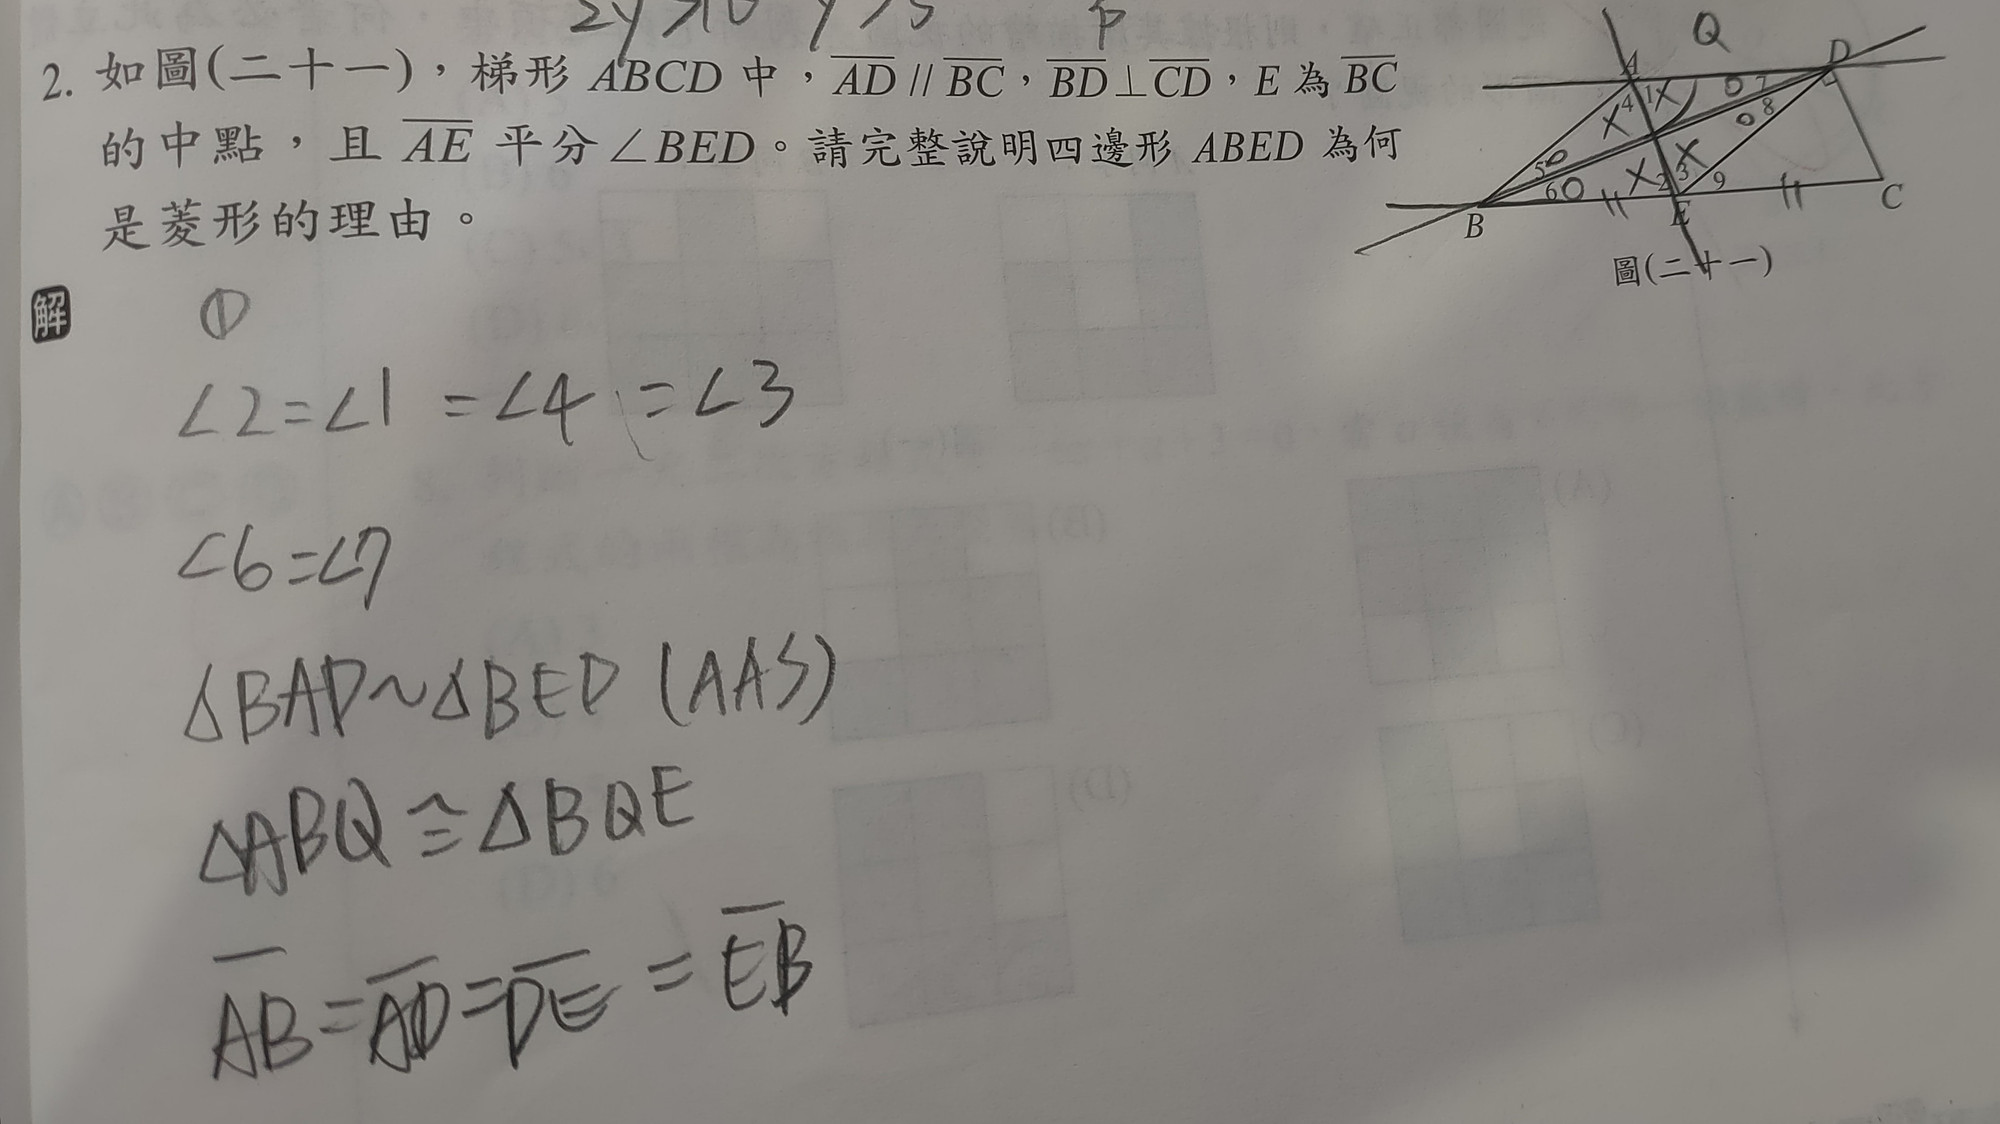 2y>10 y>5 P
2. 如圖(二十一)，梯形 ABCD 中，AD // BC，BD⊥CD，E 為 BC
的中點，且 AE 平分∠BED。請完整說明四邊形 ABED 為何
是菱形的理由。
Q
A D
4 1 X 0 7
X 0 8
5 0 X X
6 0 2 3 9
B E C
圖(二十一)
解 ①
∠2=∠1 =∠4 =∠3
∠6=∠7
△BAD~△BED (AAS)
△ABQ≅△BQE
AB=AD=DE=EB
(B) (A)
(D) (C)